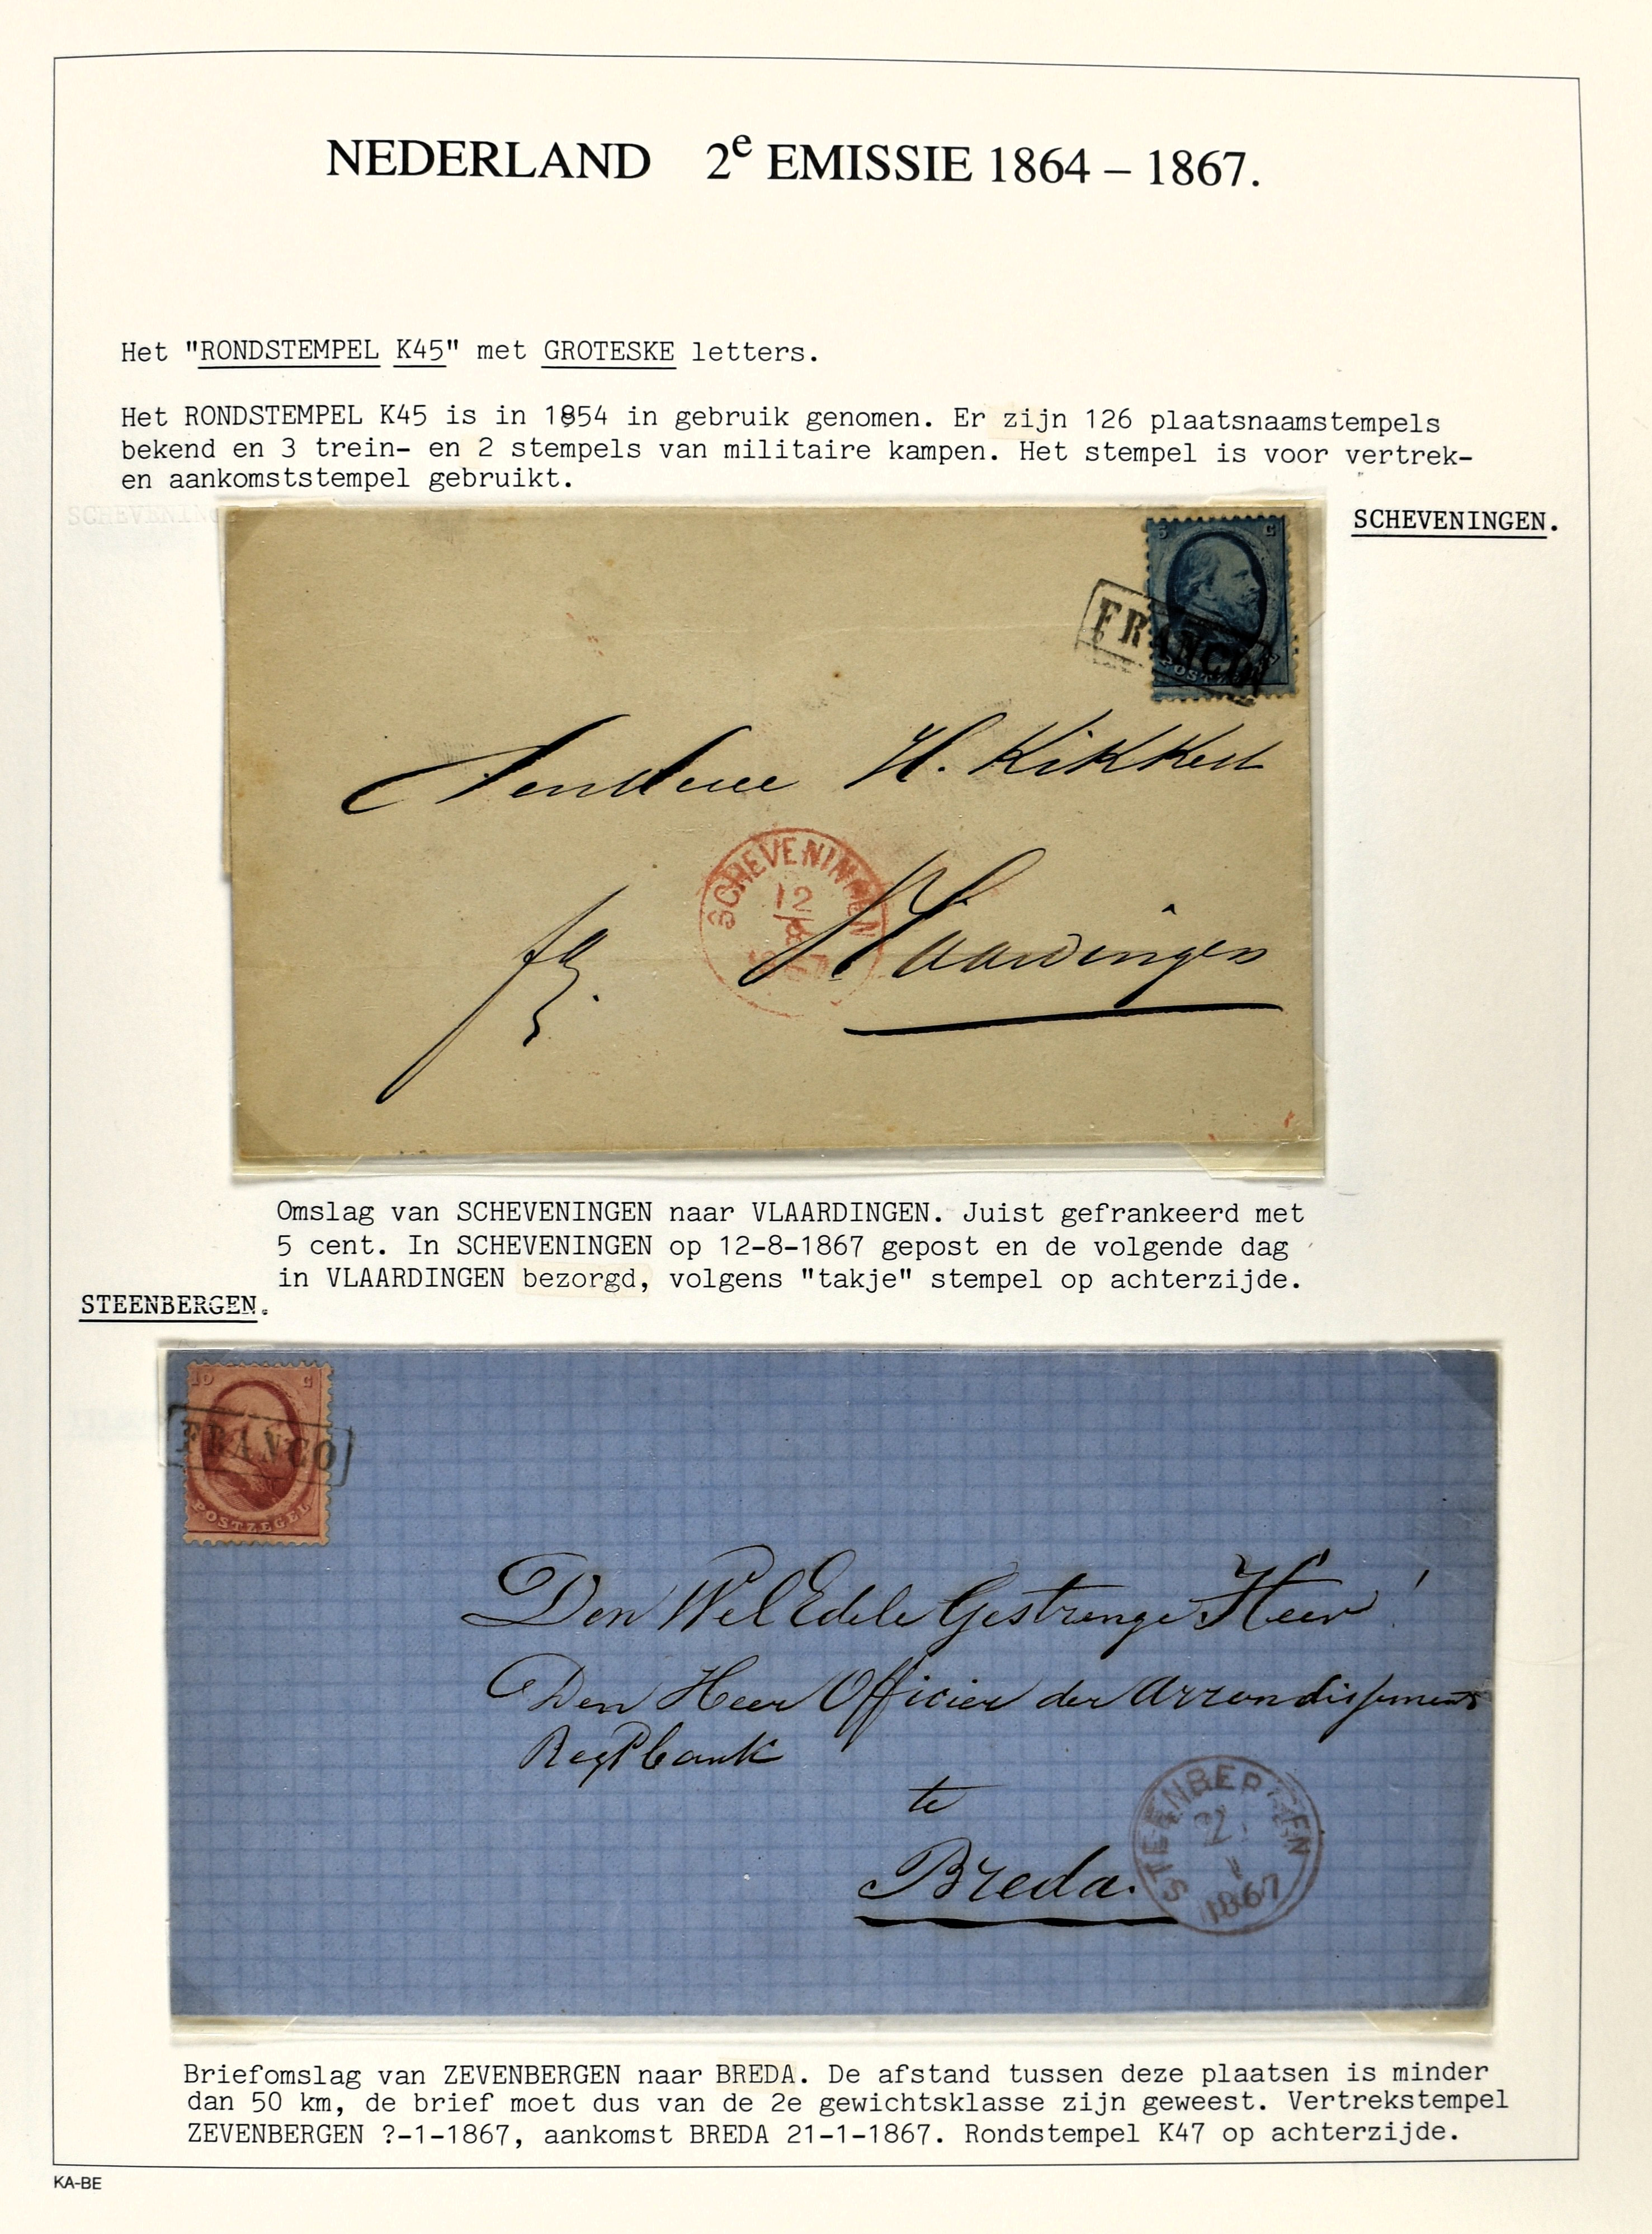 NEDERLAND 2e EMISSIE 1864 – 1867.
Het "RONDSTEMPEL K45" met GROTESKE letters.
Het RONDSTEMPEL K45 is in 1854 in gebruik genomen. Er zijn 126 plaatsnaamstempels
bekend en 3 trein- en 2 stempels van militaire kampen. Het stempel is voor vertrek-
en aankomststempel gebruikt.
SCHEVENINGEN.
5 C
FRANCO
POSTZEGEL
H. Kikkert
SCHEVENINGEN
12
8
1867
Vlaardingen
Omslag van SCHEVENINGEN naar VLAARDINGEN. Juist gefrankeerd met
5 cent. In SCHEVENINGEN op 12-8-1867 gepost en de volgende dag
in VLAARDINGEN bezorgd, volgens "takje" stempel op achterzijde.
STEENBERGEN.
10 C
FRANCO
POSTZEGEL
Den Wel Edele Gestrenge Heer
Den Heer Officier der Arrondissements
te
Breda.
STEENBERGEN
1867
Briefomslag van ZEVENBERGEN naar BREDA. De afstand tussen deze plaatsen is minder
dan 50 km, de brief moet dus van de 2e gewichtsklasse zijn geweest. Vertrekstempel
ZEVENBERGEN ?-1-1867, aankomst BREDA 21-1-1867. Rondstempel K47 op achterzijde.
KA-BE